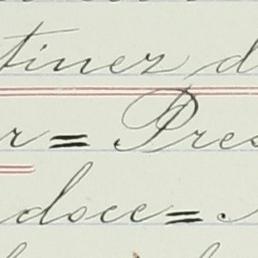 tinez d
r= Pres
doce=